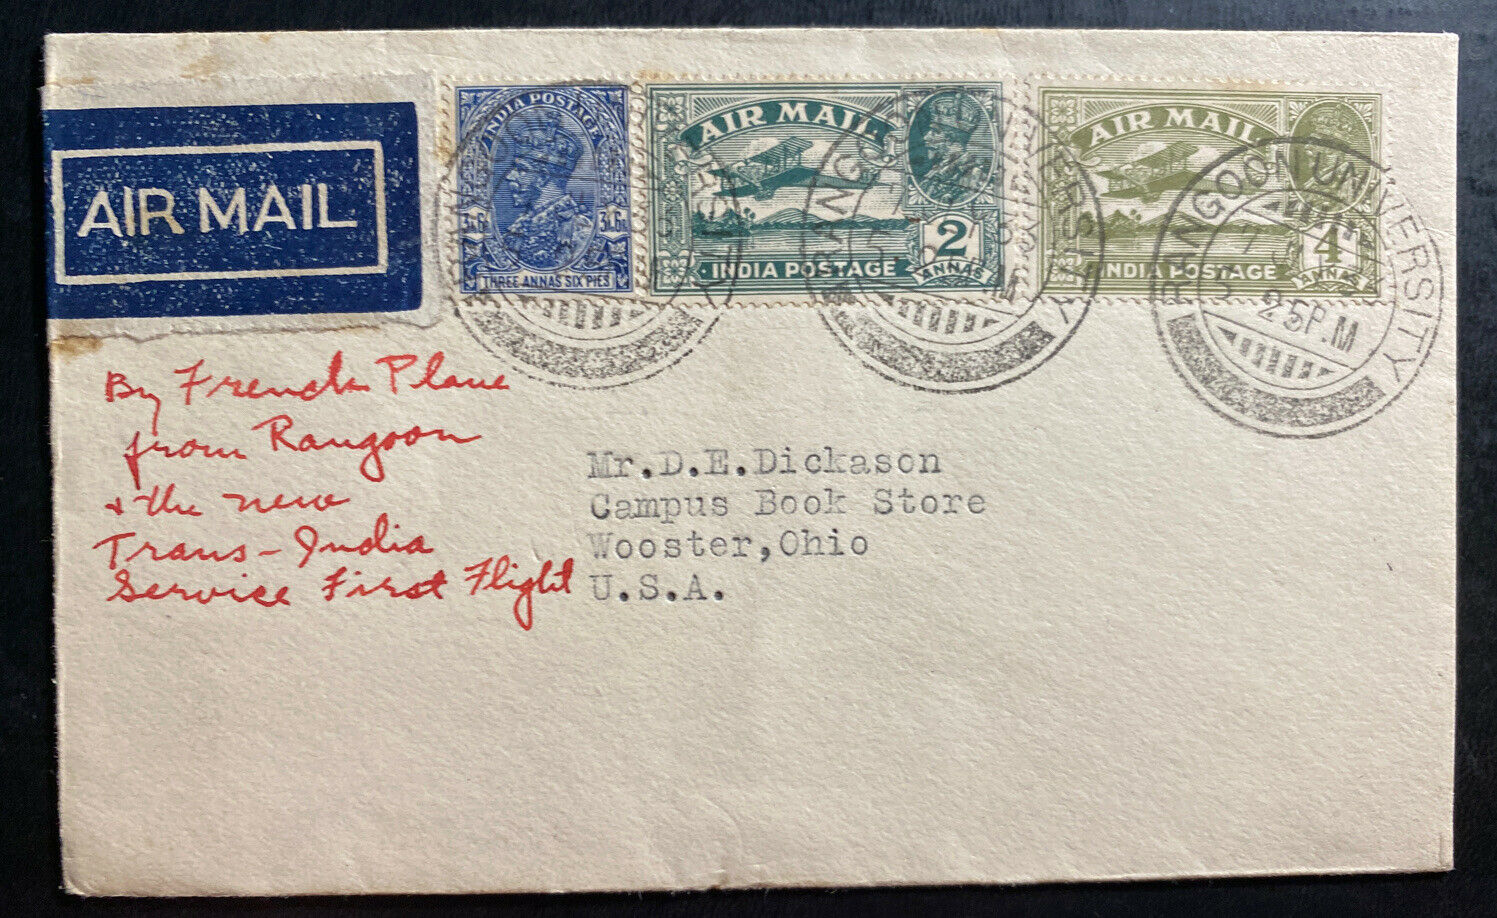 AIR MAIL
INDIA POSTAGE
3A.6P. 3A.6P.
THREE ANNAS SIX PIES
AIR MAIL
2
INDIA POSTAGE
ANNAS
AIR MAIL
4
INDIA POSTAGE
ANNAS
RANGOON UNIVERSITY
RANGOON UNIVERSITY
RANGOON UNIVERSITY
25P.M
By French Plane
from Rangoon
+ the new
Trans-India
Service First Flight
Mr.D.E.Dickason
Campus Book Store
Wooster,Ohio
U.S.A.